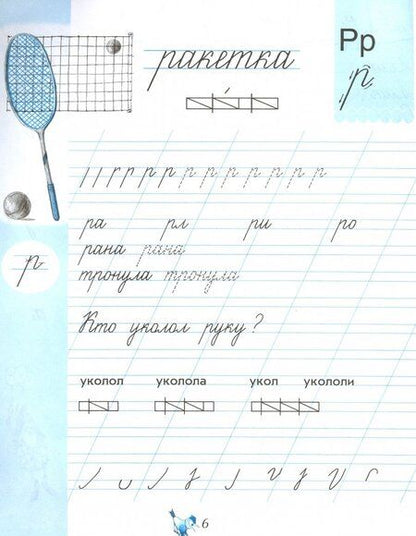 ракетка
Рр
р
р
р р р р р р р р р р р
ра рл ри ро
рана рана
тронула тронула
Кто уколол руку?
уколол уколола укол укололи
6